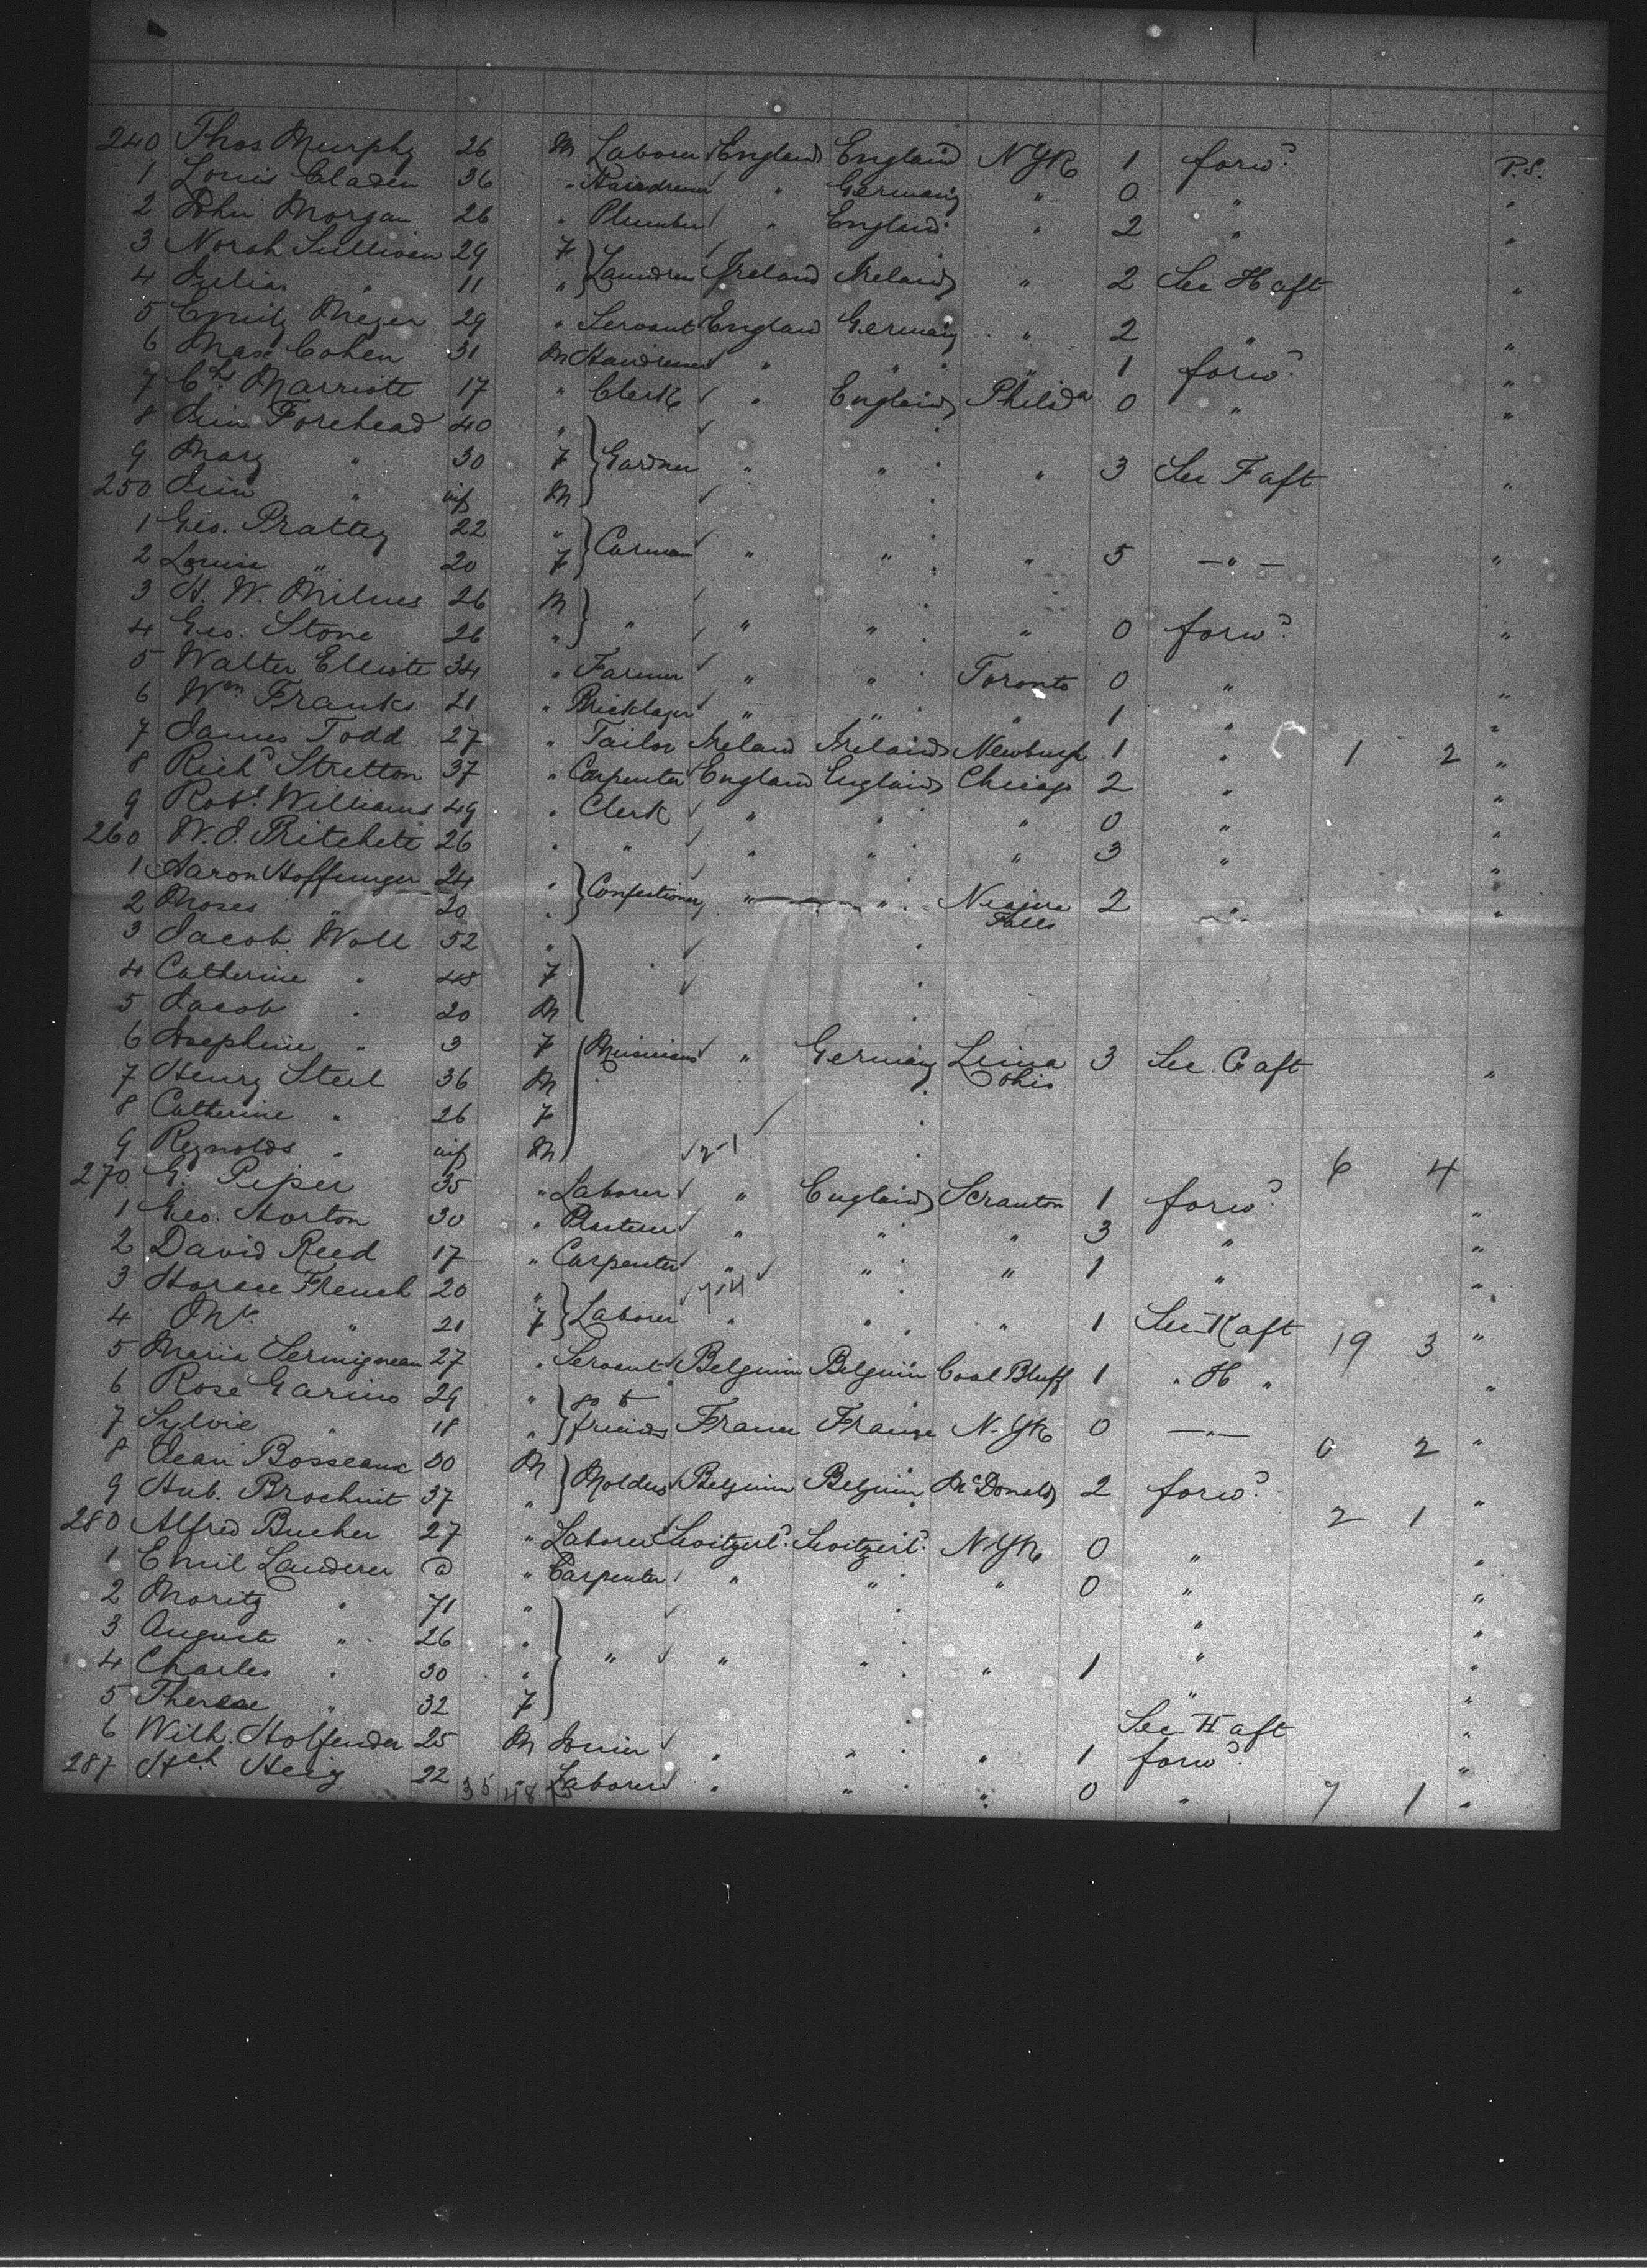 240 Thos Murphy 26 M Laborer England England N Yk 1 forwd P.S.
1 Louis Claden 36 " Hairdresser " Germany " 0 " "
2 John Morgan 26 " Plumber " England " 2 " "
3 Norah Sullivan 29 F Laundress Ireland Ireland " 2 See H aft "
4 Julia " 11 "
5 Emily Meyer 29 " Servant England Germany " 2 " "
6 Max Cohen 31 M Hairdresser " " " 1 forwd "
7 Chs Marriott 17 " Clerk " England Philda 0 " "
8 Jim Forehead 40 "
9 Mary " 30 F Gardner " " " 3 See F aft "
250 Jim " inf M
1 Geo. Prattey 22 " Carman " " " 5 — " — "
2 Louisa " 20 F
3 H. W. Milnes 26 M " " " " 0 forwd "
4 Geo. Stone 26 "
5 Walter Elliott 34 " Farmer " " Toronto 0 " "
6 Wm Franks 21 " Bricklayer " " " 1 " "
7 James Todd 27 " Tailor Ireland Ireland Newburgh 1 " 1 2 "
8 Richd Stretton 37 " Carpenter England England Chicago 2 " "
9 Robt Williams 49 " Clerk " " " 0 " "
260 W. J. Pritchett 26 " " " " " 3 " "
1 Aaron Hoffnunger 24 " Confectionery " " Niagra Falls 2 " "
2 Moses " 20 "
3 Jacob Woll 52 "
4 Catherine " 48 F
5 Jacob " 20 M
6 Josephine " 3 F Musicians " Germany Lima Ohio 3 See G aft "
7 Henry Steel 36 M
8 Catherine " 26 F
9 Reynolds " inf M 2-1 6 4
270 G. Piper 35 " Laborer " England Scranton 1 forwd "
1 Geo. Horton 30 " Plasterer " " " 3 " "
2 David Reed 17 " Carpenter " " " 1 " "
3 Horace French 20 " Laborer " " " 1 See K aft 19 3 "
4 Mrs " 21 F
5 Maria 27 " Servant Belguim Belguim Coal Bluff 1 " H " "
6 Rose Garino 29 " go to
7 Sylvie " 18 " friends France France N. Yk 0 — " — 0 2 "
8 Jean Bosseaux 30 M Molders Belguim Belguim McDonald 2 forwd "
9 Hub. Brochuit 37 " 2 1
280 Alfred Bucher 27 " Laborer Switzerld. Switzerld. N Yk 0 " "
1 Emil Landerer " Carpenter " " " 0 " "
2 Moritz " 71 " " "
3 Auguste " 26 " " " " " 1 " "
4 Charles " 30 " " "
5 Therese " 32 F See H aft "
6 Wilh. Holfender 25 M Joiner " " " 1 forwd "
287 Hch Heig 22 " Laborer " " " 0 " 7 1 "
35 48